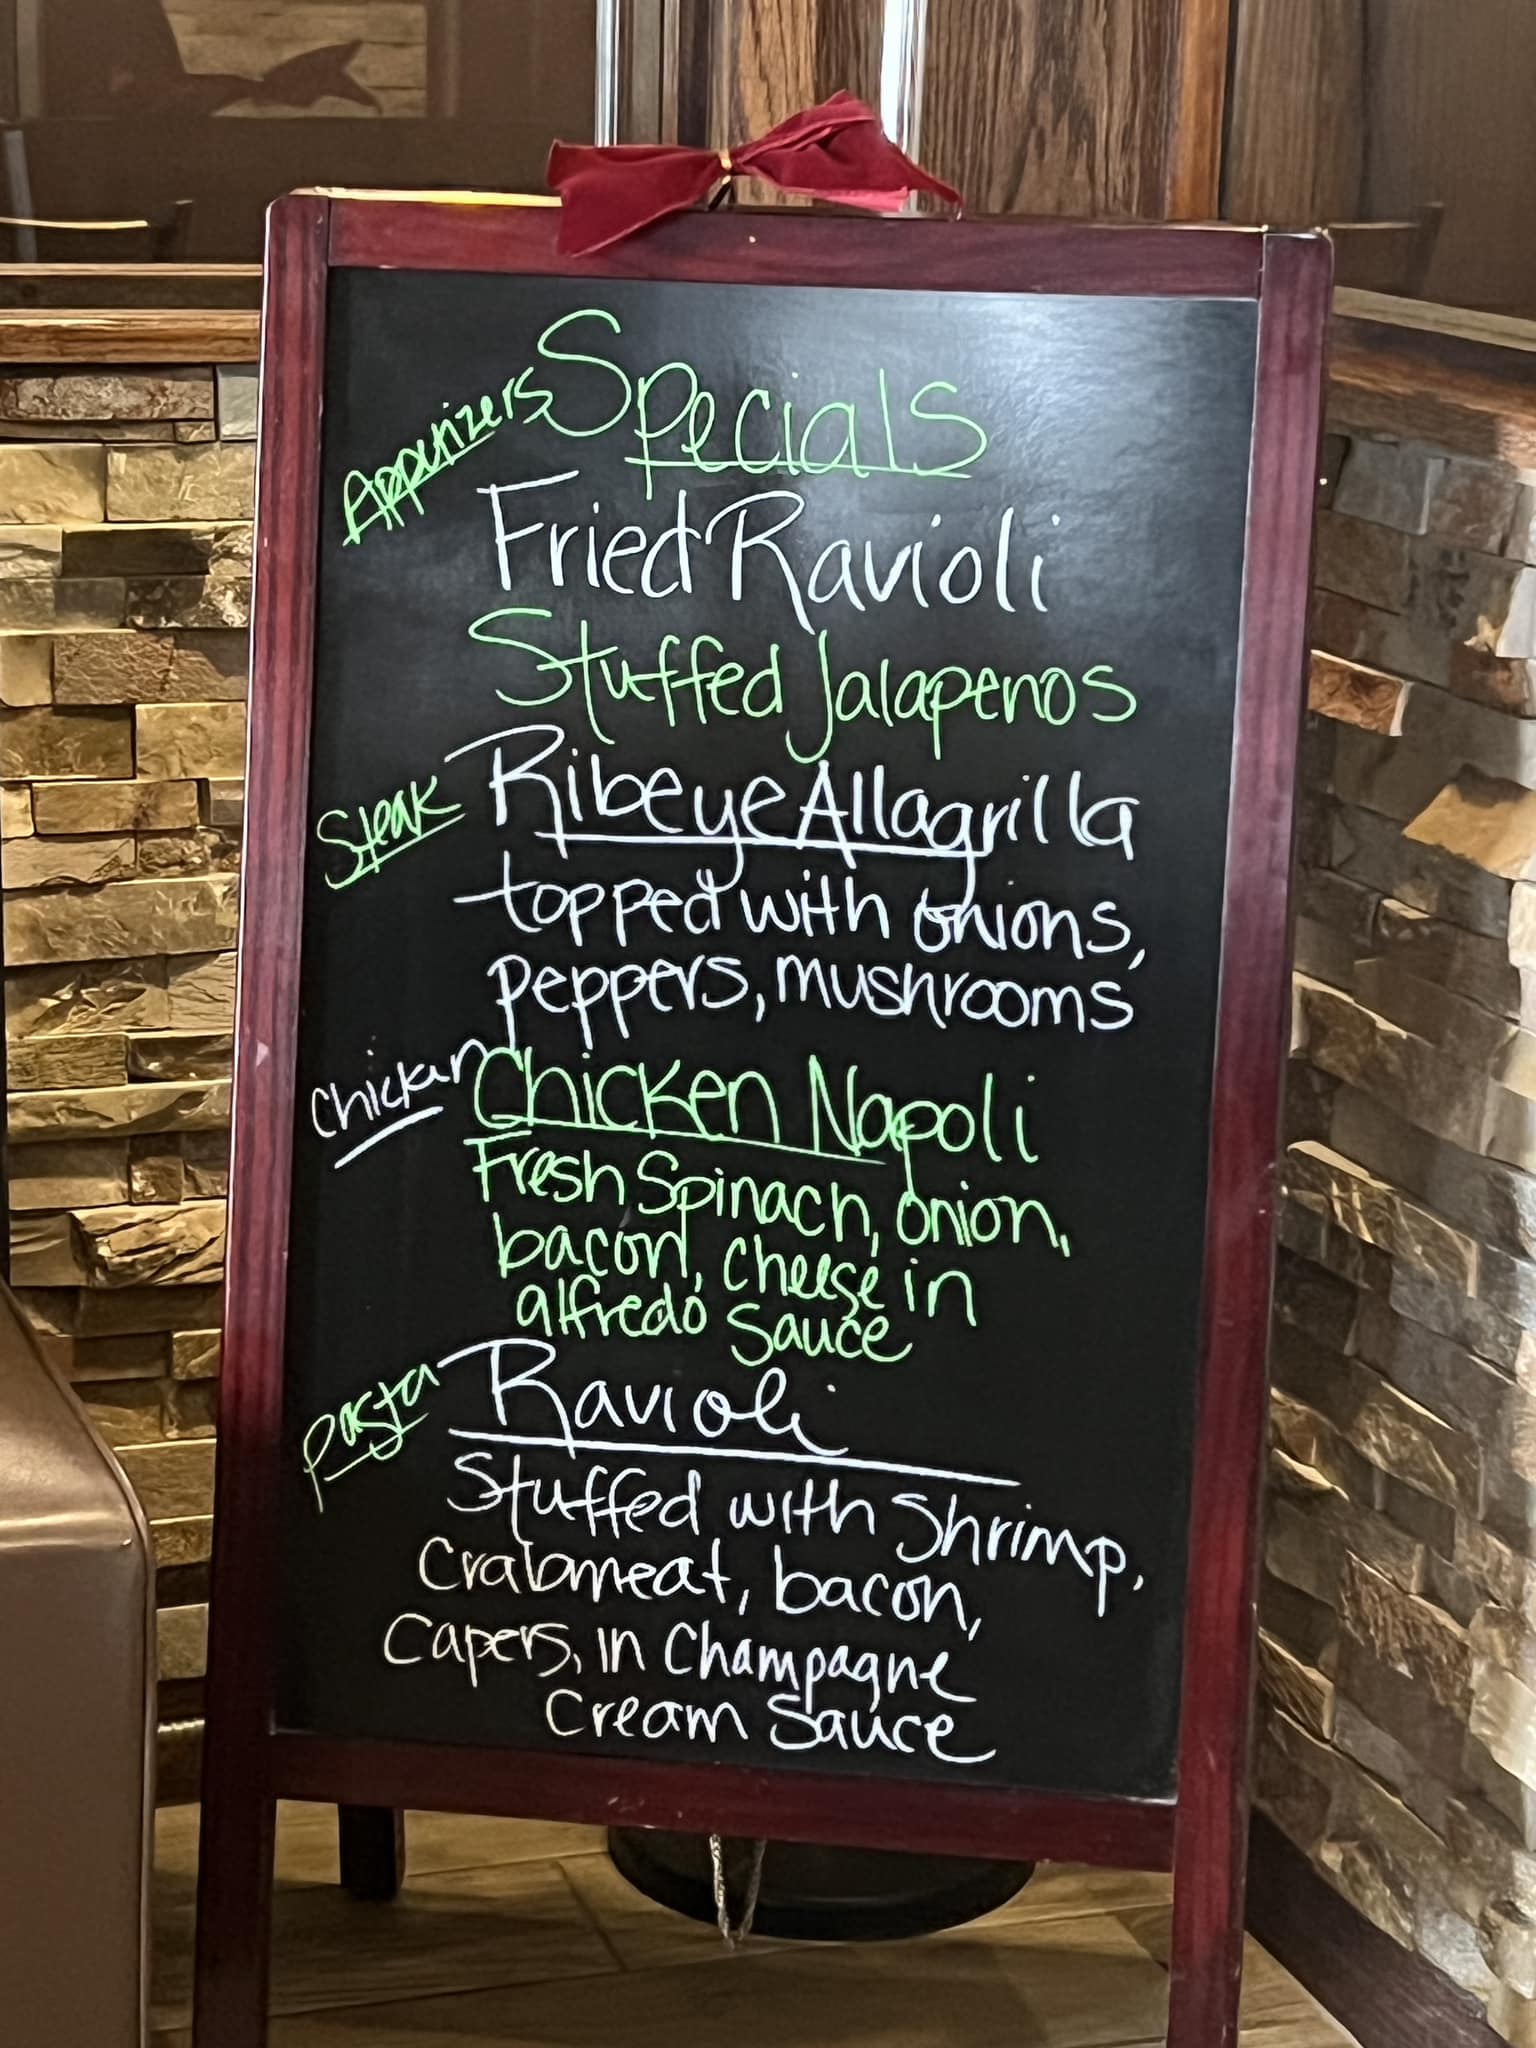 Specials
Appetizers
Fried Ravioli
Stuffed Jalapenos
Steak
Ribeye Allagrilla
topped with onions,
peppers, mushrooms
Chicken
Chicken Napoli
Fresh Spinach, onion,
bacon, cheese in
alfredo sauce
Pasta
Ravioli
Stuffed with shrimp,
Crabmeat, bacon,
Capers, in Champagne
Cream Sauce